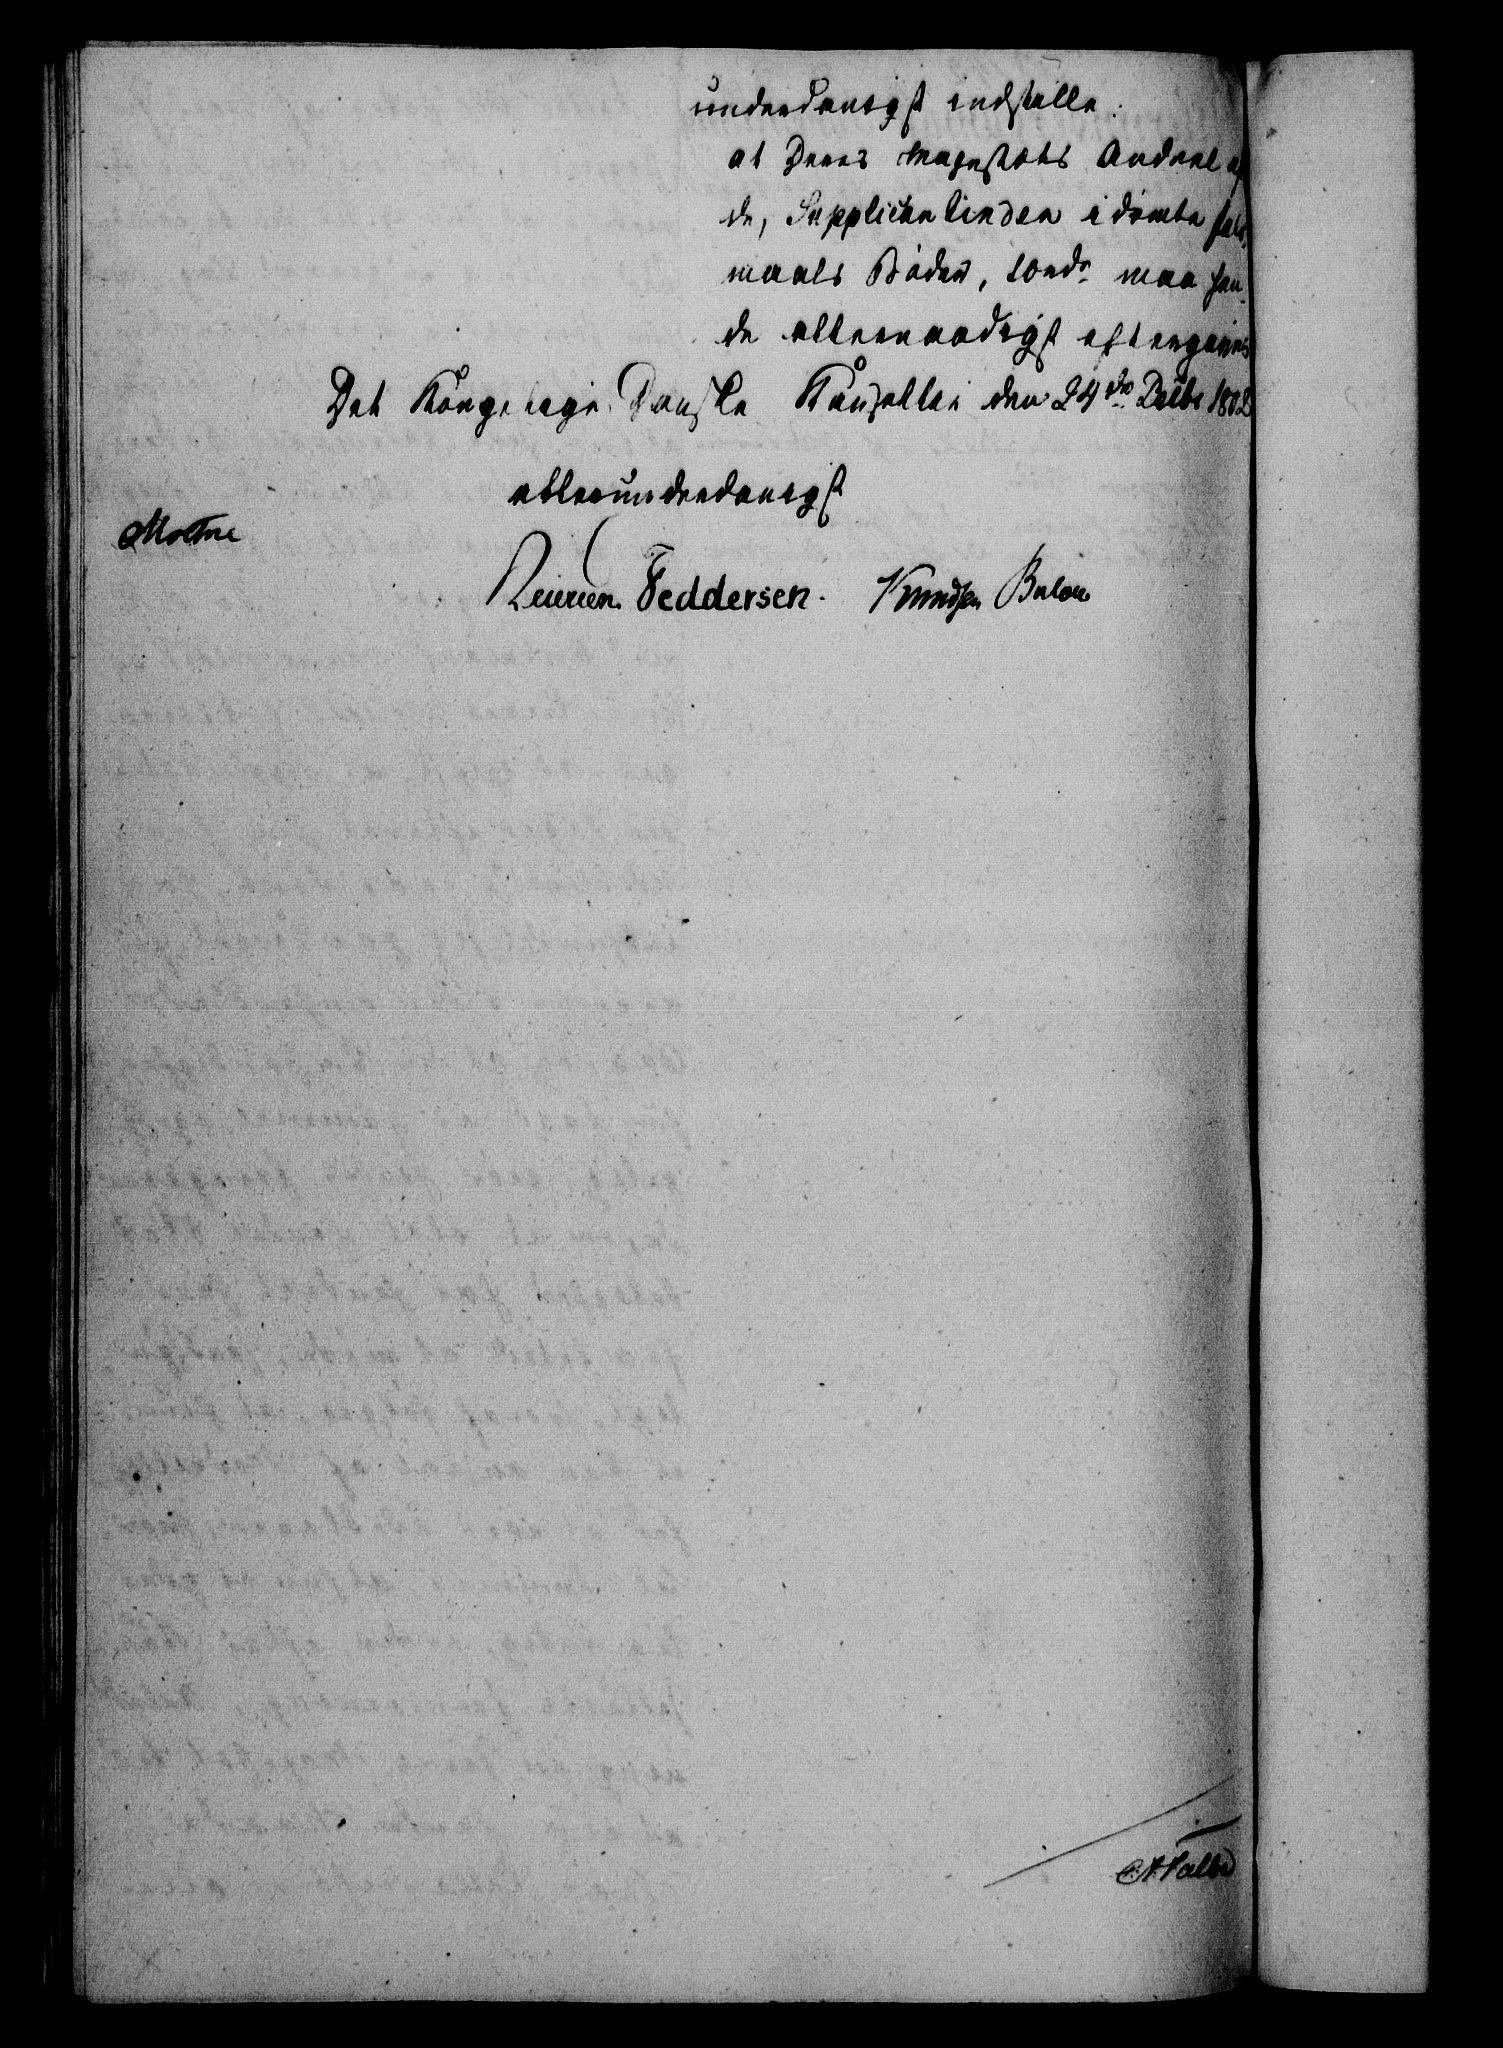 underdanigst indstille:
at Deres Majestæts Andeel af
de, Supplicantinden idømte Leier¬
maals Bøder, 10 rdr maa hen¬
de allernaadigst eftergives
Det Kongelige Danske Kancellie den 24de Decbr 1802
allerunderdanigst
Moltke
Feddersen. Knudsen Bülow